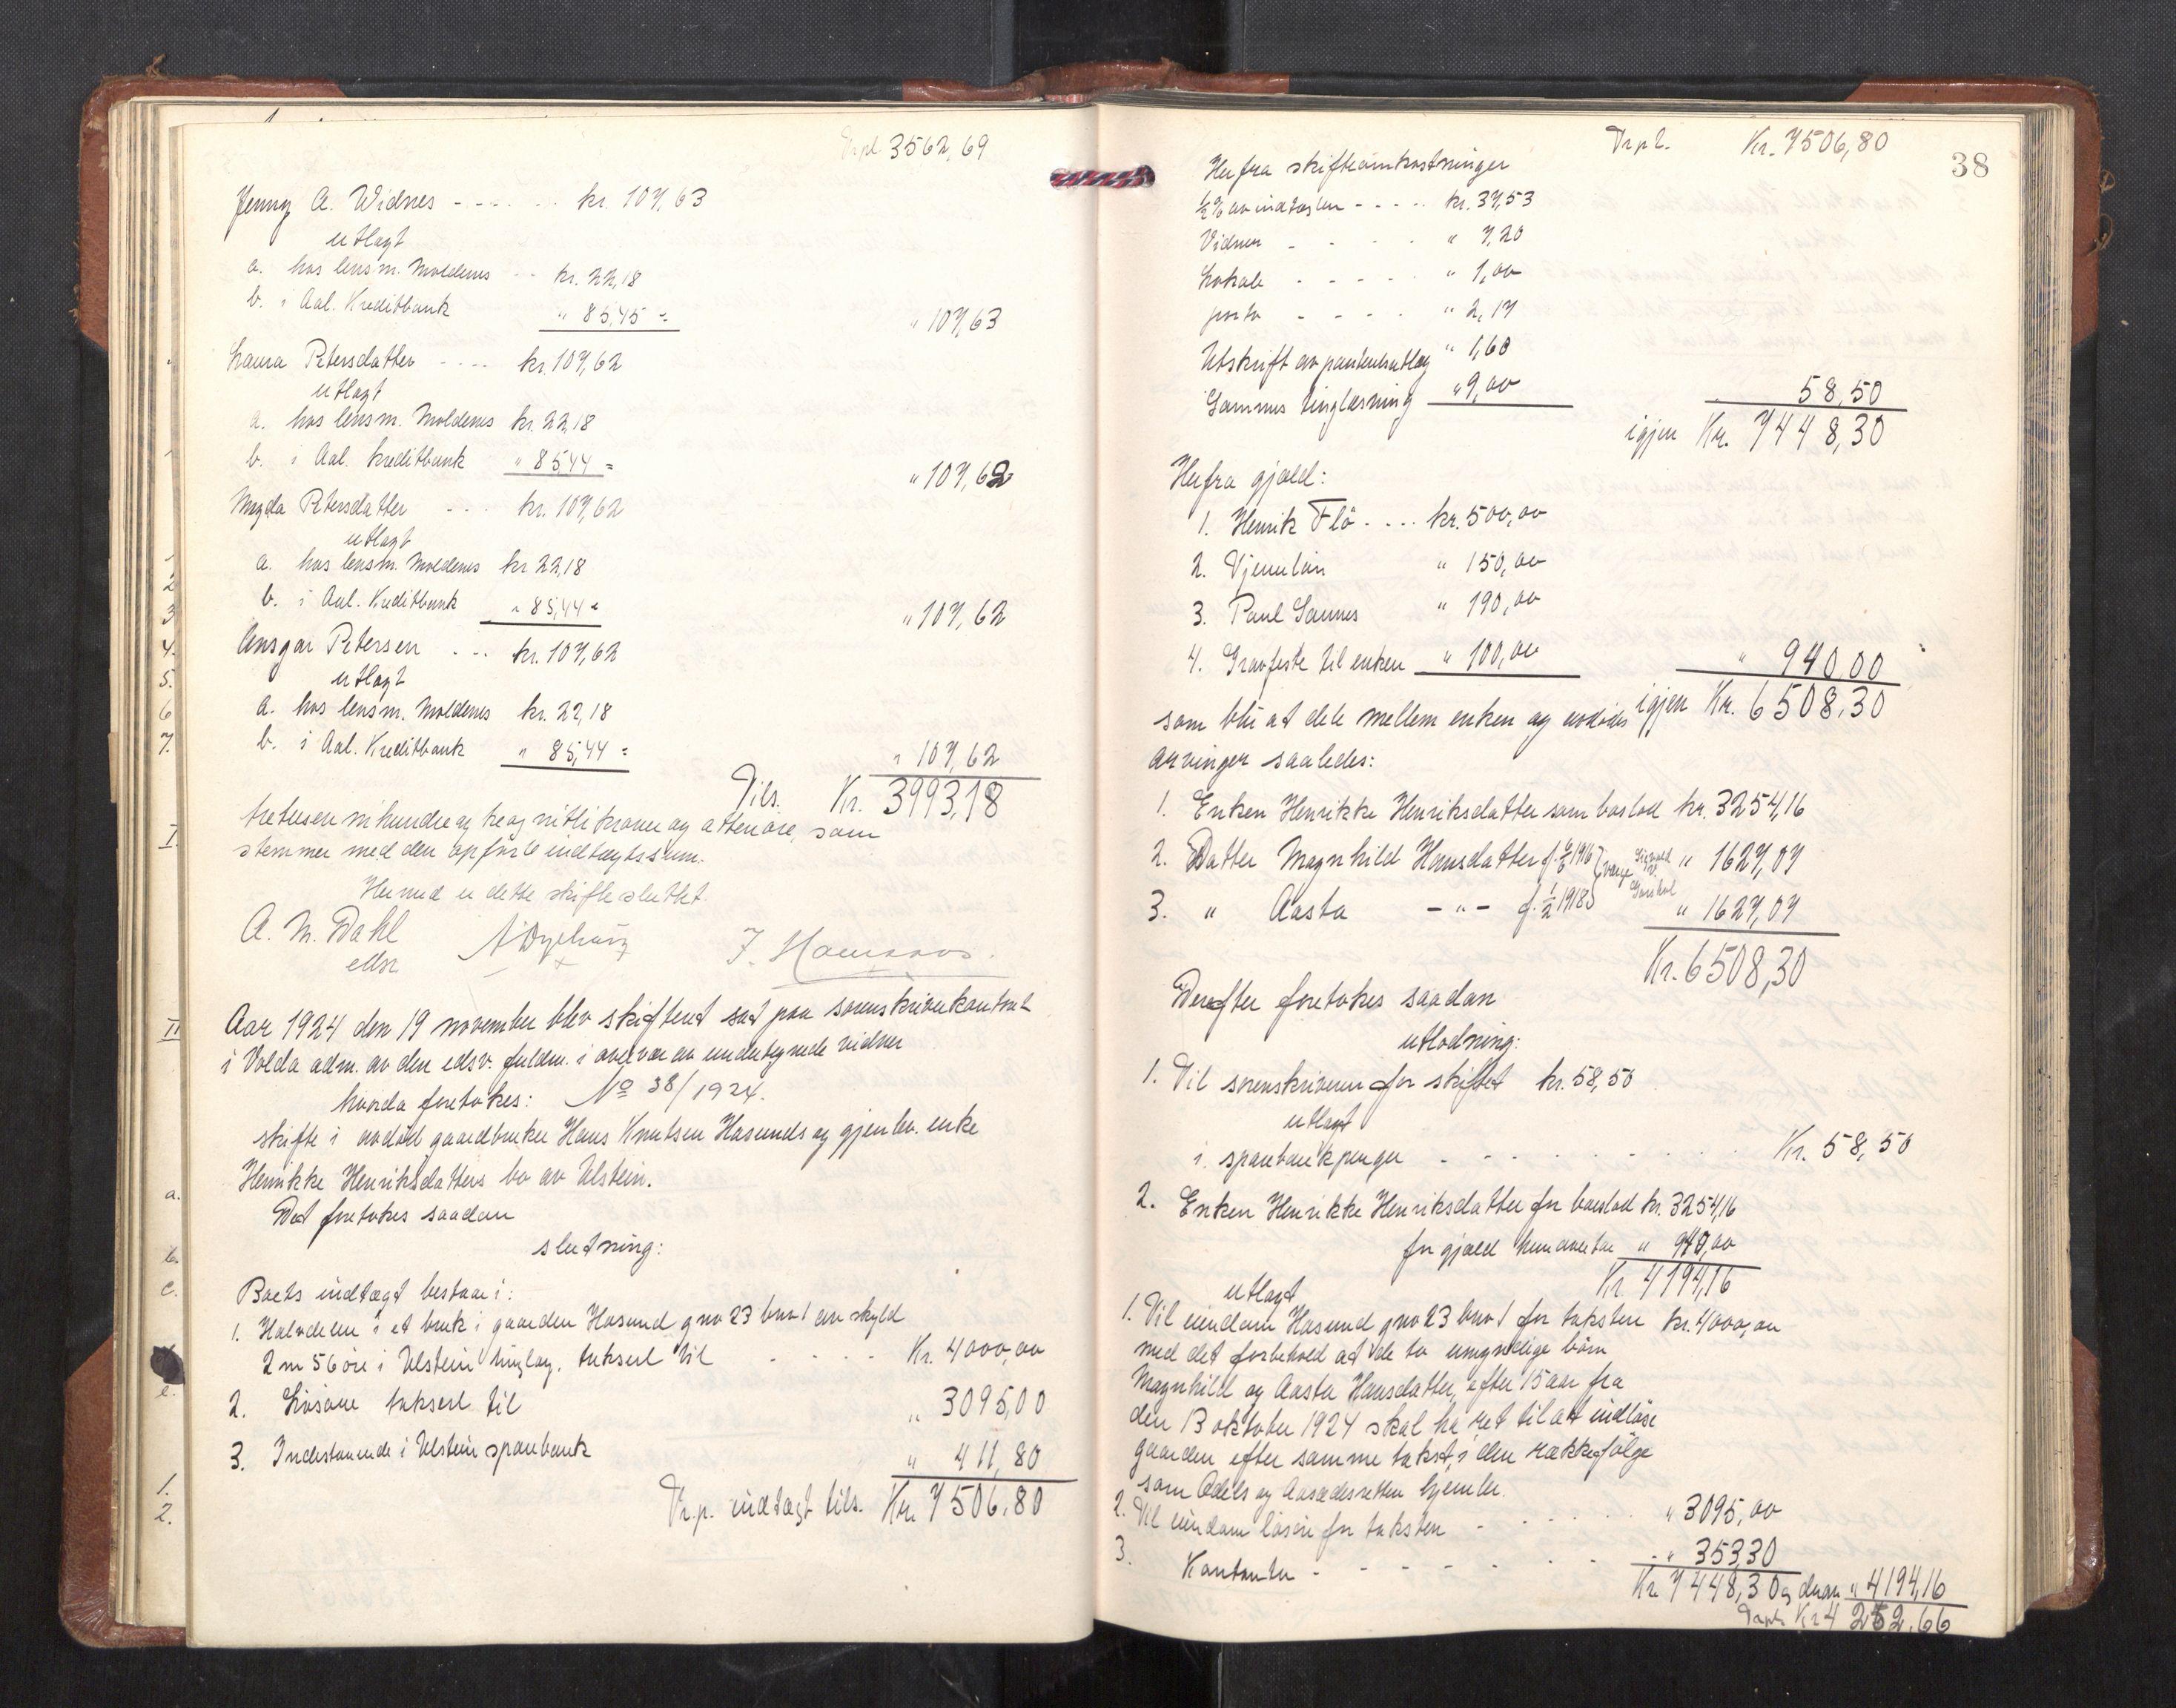 Trpt. 3562,69
Jenny A. Widnes - - - - - kr. 107,63
utlagt
a. hos lensm. Moldenes - - kr. 22,18
b. i Aal. Kreditbank " 85,45 = " 107,63
Laura Petersdatter - - - - kr. 107,62
utlagt
a. hos lensm. Moldenes kr. 22,18
b. i Aal. kreditbank " 85,44 = " 107,62
Magda Petersdatter - - - kr. 107,62
utlagt
a. hos lensm. Moldenes kr 22,18
b. i Aal. Kreditbank " 85,44 = " 107,62
Ansgar Petersen - - - kr. 107,62
utlagt
a. hos lensm. Moldenes kr. 22,18
b. i Aal. Kreditbank " 85,44 = " 107,62
Tils. Kr. 3993,18
tretusen nihundre og treognitti kroner og atten øre, som
stemmer med den opførte indtægtssum.
Hermed er dette skifte sluttet.
A. M. Dahl
edsv
J. Hamsaas.
Aar 1924 den 19 november blev skifteret sat paa sorenskriverkontoret
i Volda adm. av den edsv. fuldm. i overvær av undertegnede vidner
hvorda foretokes: No 38/1924.
skifte i avdød gaardbruker Hans Knutsen Hasunds og gjenlev. enke
Henrikke Henriksdatters bo av Ulstein.
Det foretokes saadan
slutning:
Boets indtægt bestaar i:
1. Halvdelen i et bruk i gaarden Hasund gno 23 bno 1 av skyld
2 m 56 øre i Ulstein tinglag, taksert til - - - - Kr. 4000,00
2. Løsøre taksert til " 3095,00
3. Indestaaende i Ulstein sparebank " 411,80
Tr.p. indtægt tils. Kr. 7506,80
38
Trpt. Kr. 7506,80
Herfra skifteomkostninger
½ % av indtægten - - - - kr. 37,53
Vidner - - - - " 7,20
Lokale - - - - " 1,00
porto - - - - " 2,17
Utskrift av panteutlæg " 1,60
Sammes tinglæsning " 9,00 58,50
igjen Kr. 7448,30
Herfra gjæld:
1. Henrik Flø - - - - kr. 500,00
2. Tjenerløn " 150,00
3. Paul Sannes " 190,00
4. Gravfeste til enken " 100,00 " 940,00
igjen Kr. 6508,30
som blir at dele mellem enken og avdødes
arvinger saaledes:
1. Enken Henrikke Henriksdatter som boslod kr. 3254,16
2. Datter Magnhild Hansdatter f. 1916 " 1627,07
3. " Aasta - " - f. ½ 1918 " 1627,07
Kr. 6508,30
Derefter foretokes saadan
utlodning:
1. Til sorenskriveren for skiftet kr. 58,50
utlagt
i sparebankpenger - - - - - - Kr. 58,50
2. Enken Henrikke Henriksdatter for boeslod kr. 3254,16
for gjæld hun overtar " 940,00
Kr 4194,16
utlagt
1. Til eiendom Hasund gno 23 bno 1 for taksten kr. 4000,00
med det forbehold at de to umyndige børn
Magnhild og Aasta Hansdatter, efter 15 aar fra
den 13 oktober 1924 skal ha ret til at indløse
gaarden efter samme takst, i den rækkefølge
som Odels og Aasædesretten hjemler.
2. Til eiendom løsøre for taksten - - - - " 3095,00
3. Kontanter - - - - - - " 353,30
Kr 7448,30 og derav " 4194,16
Trpt. Kr 4 252,66